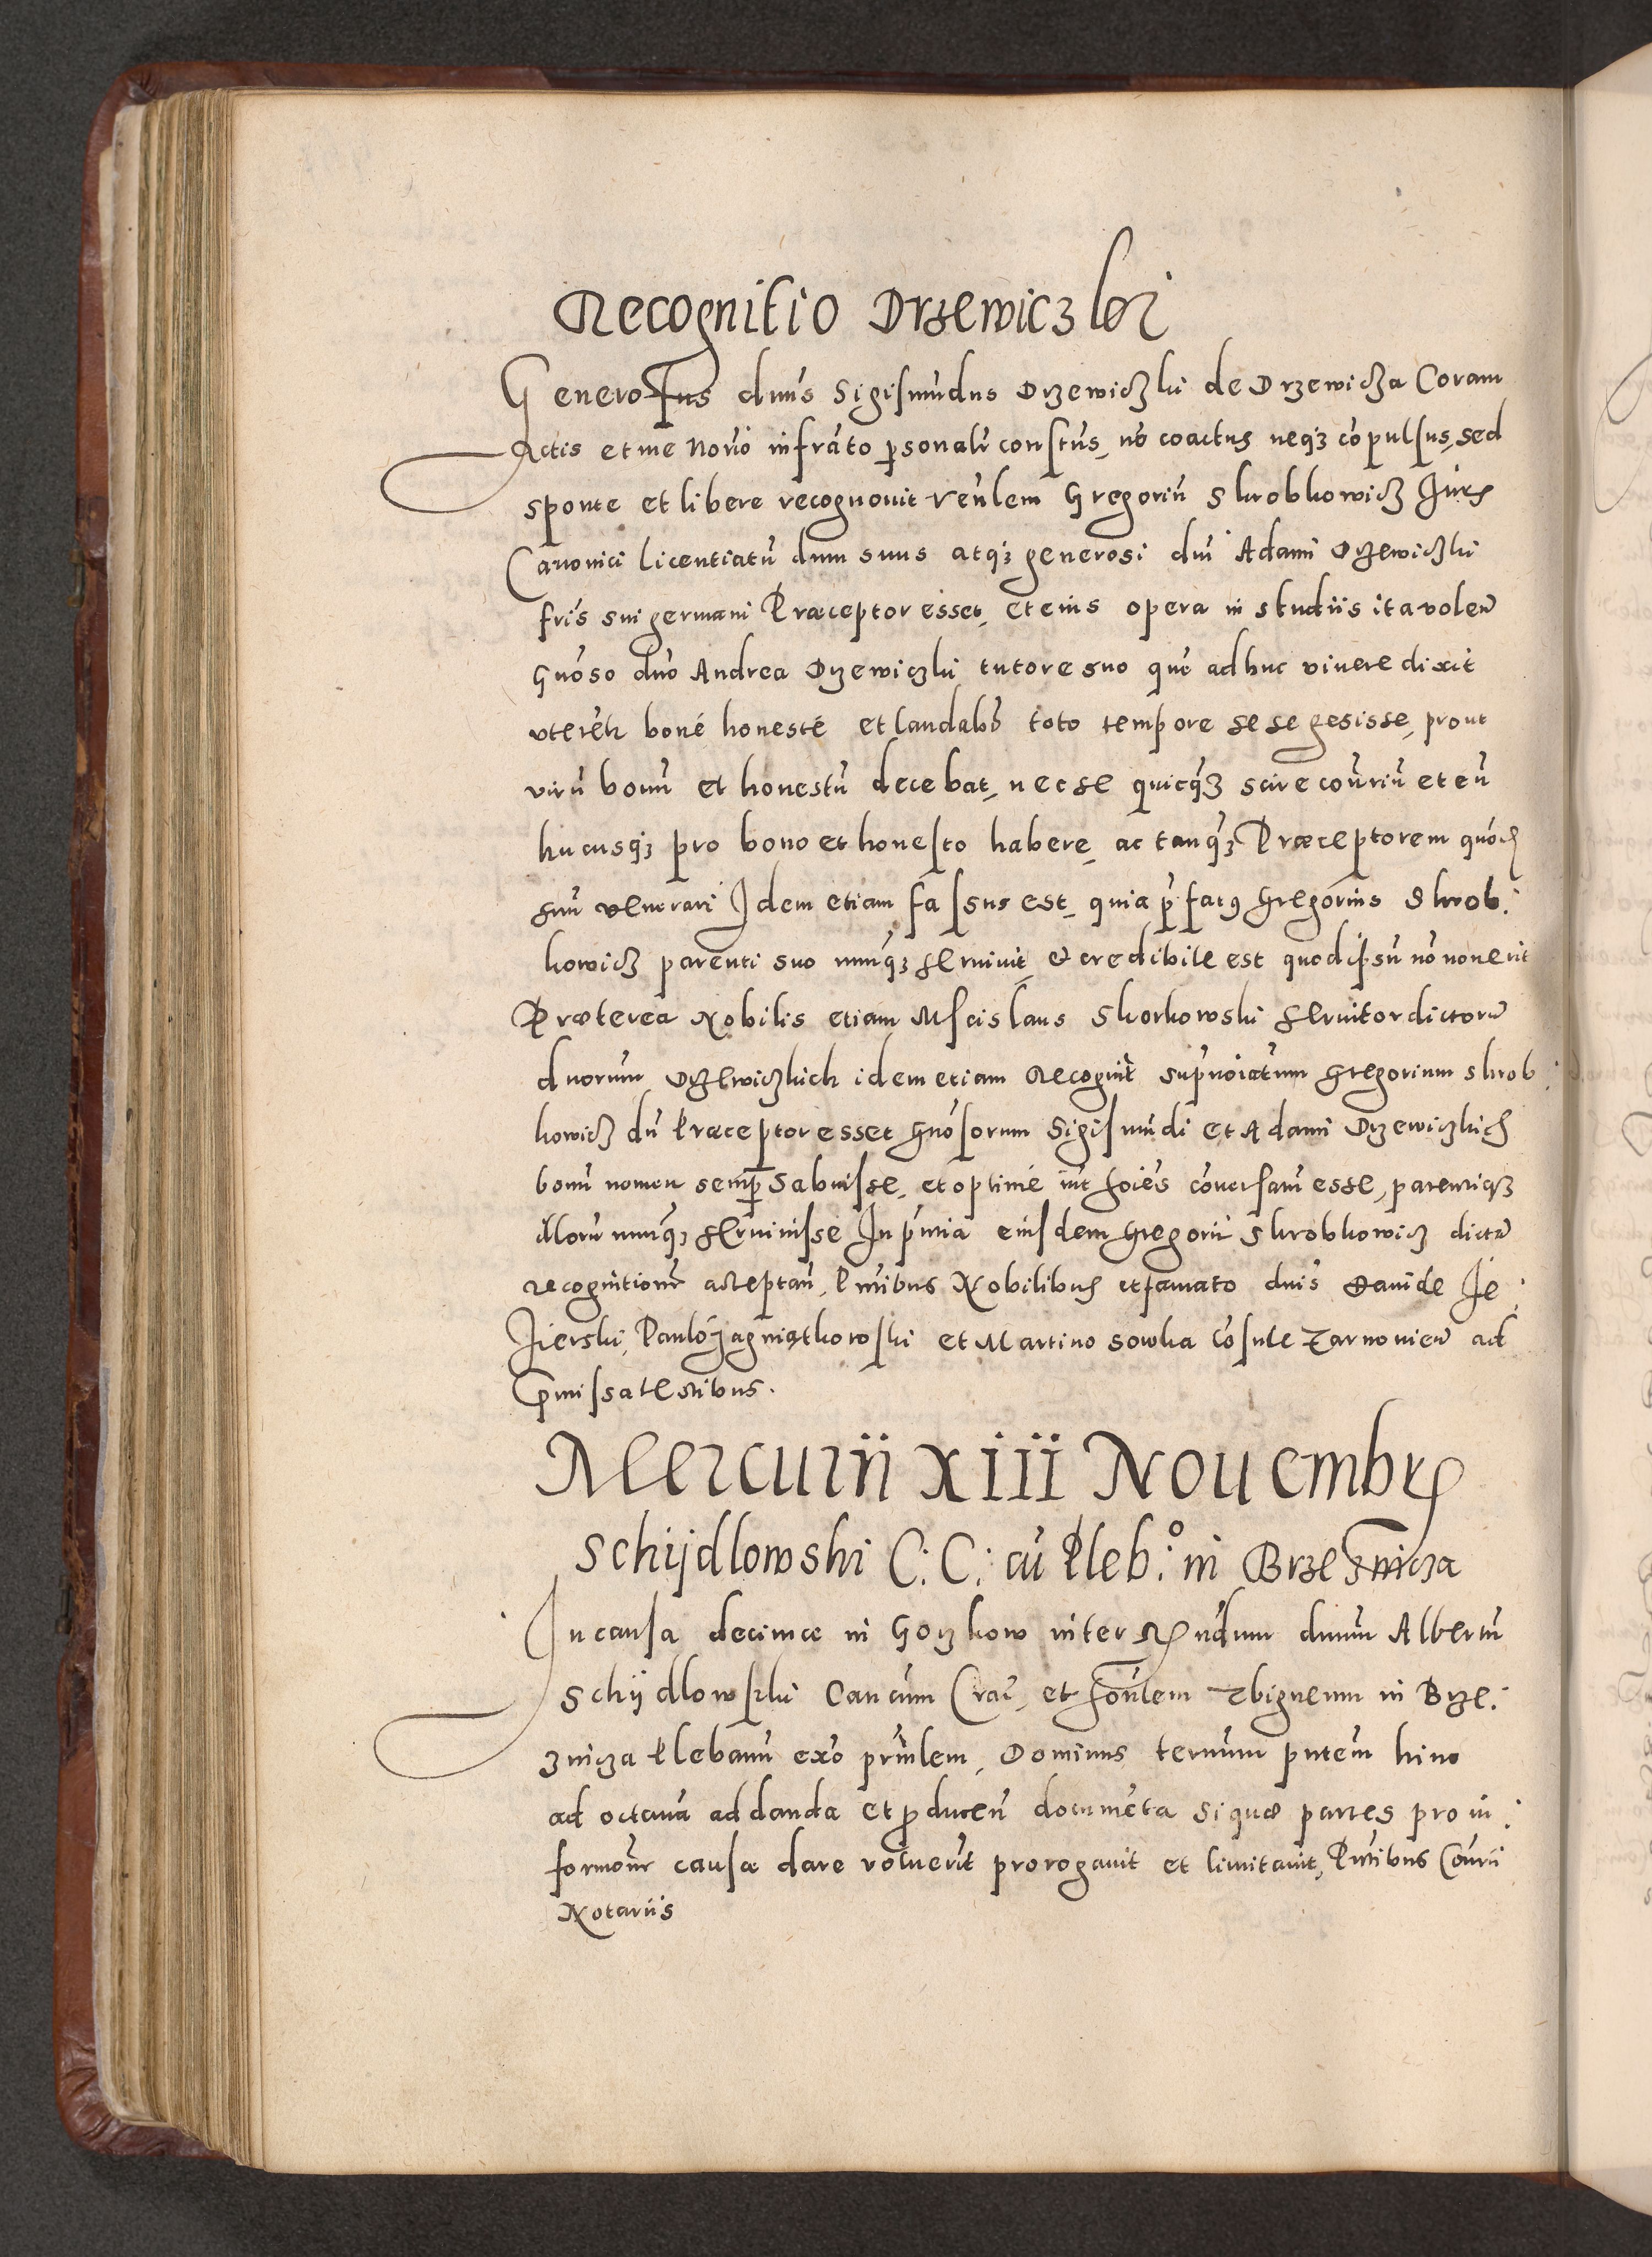 Recognitio Drzewiczki
Generosus dnus Sigismūdus Drzewiczki de Drzewicza Coram
Actis et me Norio infrato psonalr constūs, nō coactus neqz cōpulsus, sed
sponte et libere recognovit venlem Gregoriū Skrobkowicz Juris
Canonici licentiatū dum suus atqz generosi dni Adami Drzewiczki
fris sui germani Præceptor esset, et eius opera in studiis ita volen
Gnoso dno Andrea Drzewiczki tutore suo quē adhuc vivere dixit
vteret boné honesté et laudabr toto tempore se se gesisse, prout
virū bonū et honestū decebat, nec se quicqz scire contriū et eū
hucusqz pro bono et honesto habere, ac tanqz Præceptorem quōd
suū venerari Idem etiam fassus est, quia pfatus Gregorius Skrob:
kowicz parenti suo nunqz servivit, & credibile est quod ipsū nō noverit
Præterea Nobilis etiam Mscislaus Skorkowski servitor dictorū
dnorum Drzewiczkich idem etiam Recognit supnoiatum Gregorium Skrob:
kowicz dū Præceptor esset Gnosorum Sigismūdi et Adami Drzewiczkich
bonū nomen semp habuisse, et optimé int hoies cōversatū esse, parentiqz
illorū nunqz servivisse In pntia eiusdem Gregorii Skrobkowicz dictā
recognitionē acceptan, Pntibus Nobilibus et famato dnis Davide Je:
Jierski, Paulo Jagniątkowski et Martino Sowka Cōsule Tarnovien ad
Pmissa testibus.
Mercurii XIII Novembris
Schijdlowski C: C: cū Pleb:o in Brzeznicza
In causa decimæ in Gorzkow inter Rndum dnum Albertū
Schijdlowski Canonicum Crac, et honlem Zbigneum in Brze:
znicza Plebanū exō prinlem, Dominus ternum pntem hinc
ad octavā ad danda et pducen documēta si quæ partes pro in:
formone causæ dare voluerit prorogavit et limitavit, Pntibus Cōnrii
Notariis